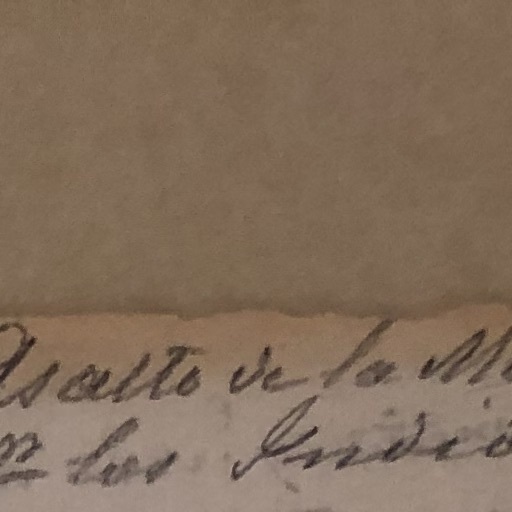 Asalto de la M
n los Indio